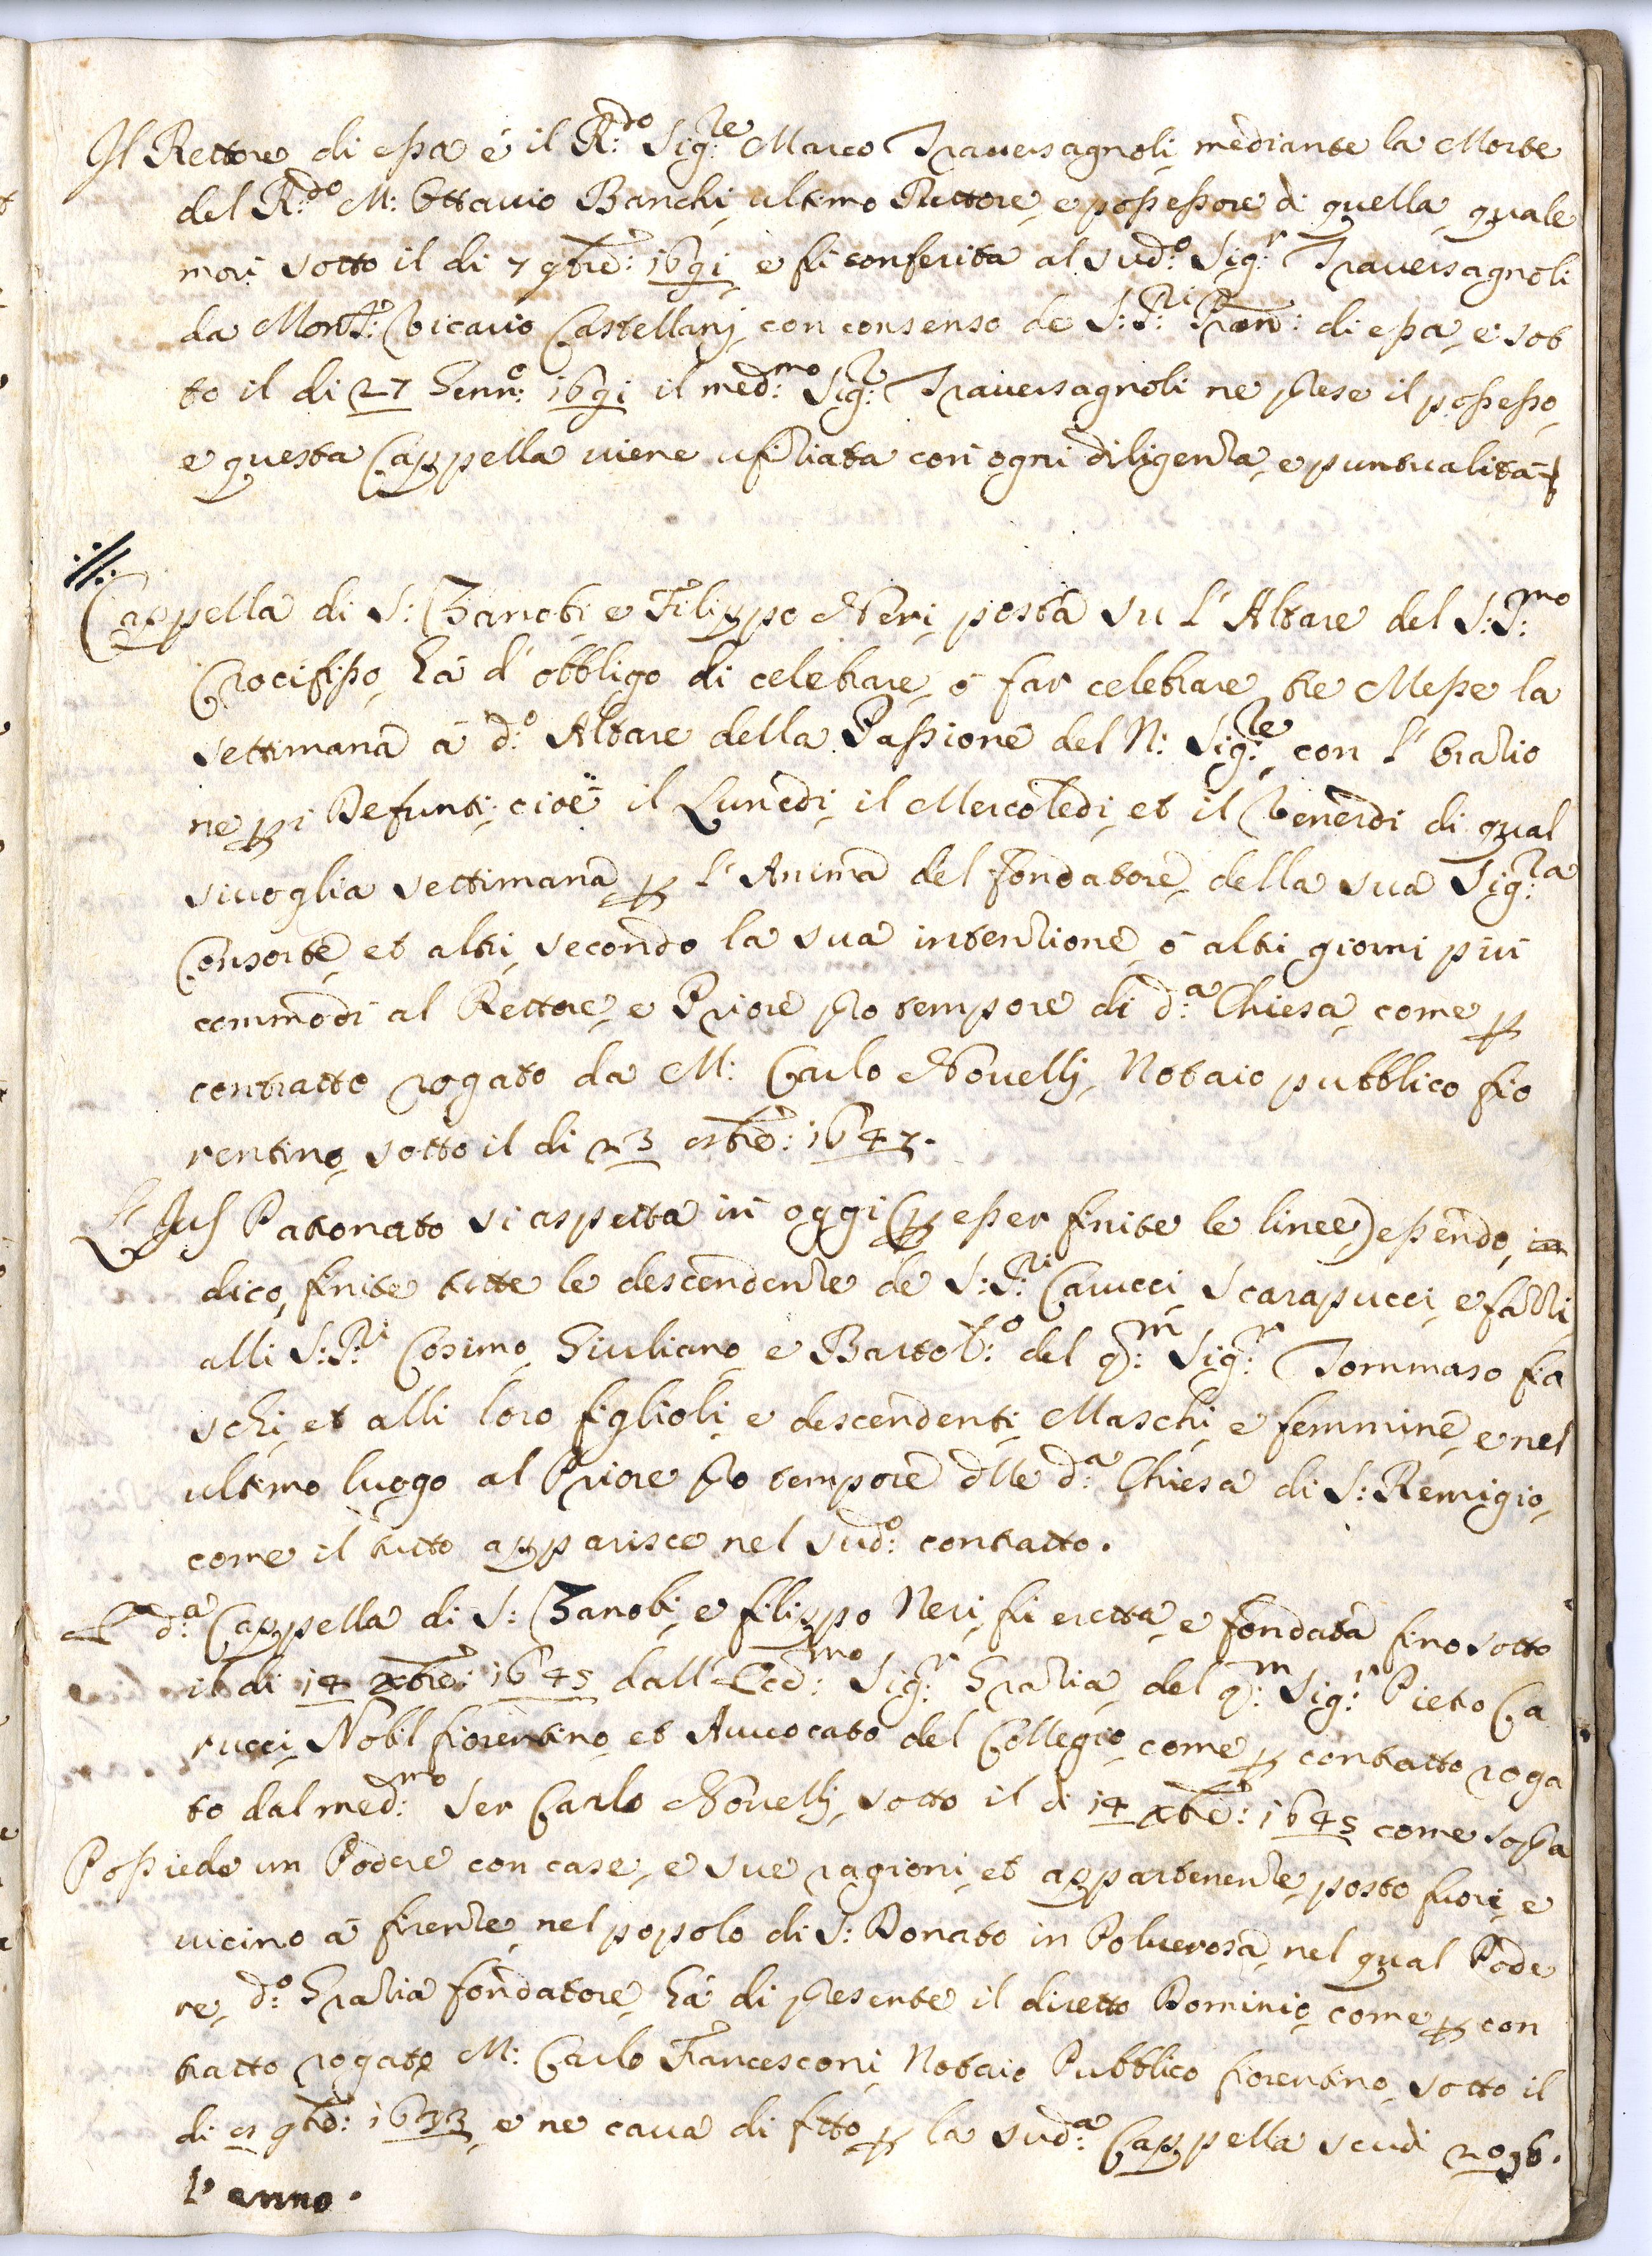 Il Rettore di essa é il R:do Sig:re Marco Traversagnoli mediante la Morte
del R:do M: Ottavio Banchi ultimo Rettore, e possessore di quella, quale
morì sotto il di 7 9bre: 1691 e fù conferita al sud:o Sig:r Traversagnoli
da Mons:r Vicario Castellani con consenso de S:S:ri Pron: di essa, e sot
to il di 27 Genn:o 1691 il med:mo Sig:r Traversagnoli ne prese il possesso,
e questa Cappella viene ufiziata con ogni diligenza, e puntualità
Cappella di S: Zanobi e Filippo Neri posta su l'Altare del S:S:mo
Crocifisso, hà d'obbligo di celebrare, ó far celebrare tre Messe la
settimana á d:o Altare della Passione del N: Sig:re con l'Orazio
ne p i Defunti, cioè il Lunedi, il Mercoledi, et il Venerdi di qual
sivoglia settimana p l'Anima del fondatore, della sua Sig:ra
Consorte, et altri, secondo la sua intenzione, ó altri giorni più
commodi al Rettore, e Priore pro tempore di d:a Chiesa, come p
contratto rogato da M: Carlo Novelli, Notaio pubblico fio
rentino, sotto il di 23 bre: 1647.
L'Jus Patronato si aspetta in oggi (p esser finite le linee) essendo,
dico, finite tutte le descendenze de S:S:ri Carucci, Scarapucci, e fazzi,
alli S:S:ri Cosimo, Giuliano, e Bartol:o del q:m Sig:r Tommaso fia
schi, et alli loro figlioli, e descendenti, Maschi, e femmine, e nel
ultimo luogo al Priore pro tempore d:lle d:a Chiesa di S: Remigio,
come il tutto apparisce nel sud:o contratto.
La d:a Cappella di S: Zanobi, e filippo Neri, fù eretta, e fondata fino sotto
il di 14 Xbre: 1645 dall'Ecc:mo Sig:r Grazia, del q:m Sig:r Pietro Ca
rucci, Nobil fiorentino, et Avvocato del Collegio, come p contratto roga
to dal med:mo Ser Carlo Novelli, sotto il di 14 Xbre: 1645 come sopra
Possiede un Podere con case, e sue ragioni, et appartenenze, posto fuori, e
vicino á firenze, nel popolo di S: Donato in Polverosa, nel qual Pode
re, d:o Grazia fondatore, hà di presente il diretto Dominio, come p con
tratto rogato M: Carlo Francesconi, Notaio Pubblico fiorentino, sotto il
di 9bre: 1633, e ne cava di fitto p la sud:a Cappella scudi
l'anno.